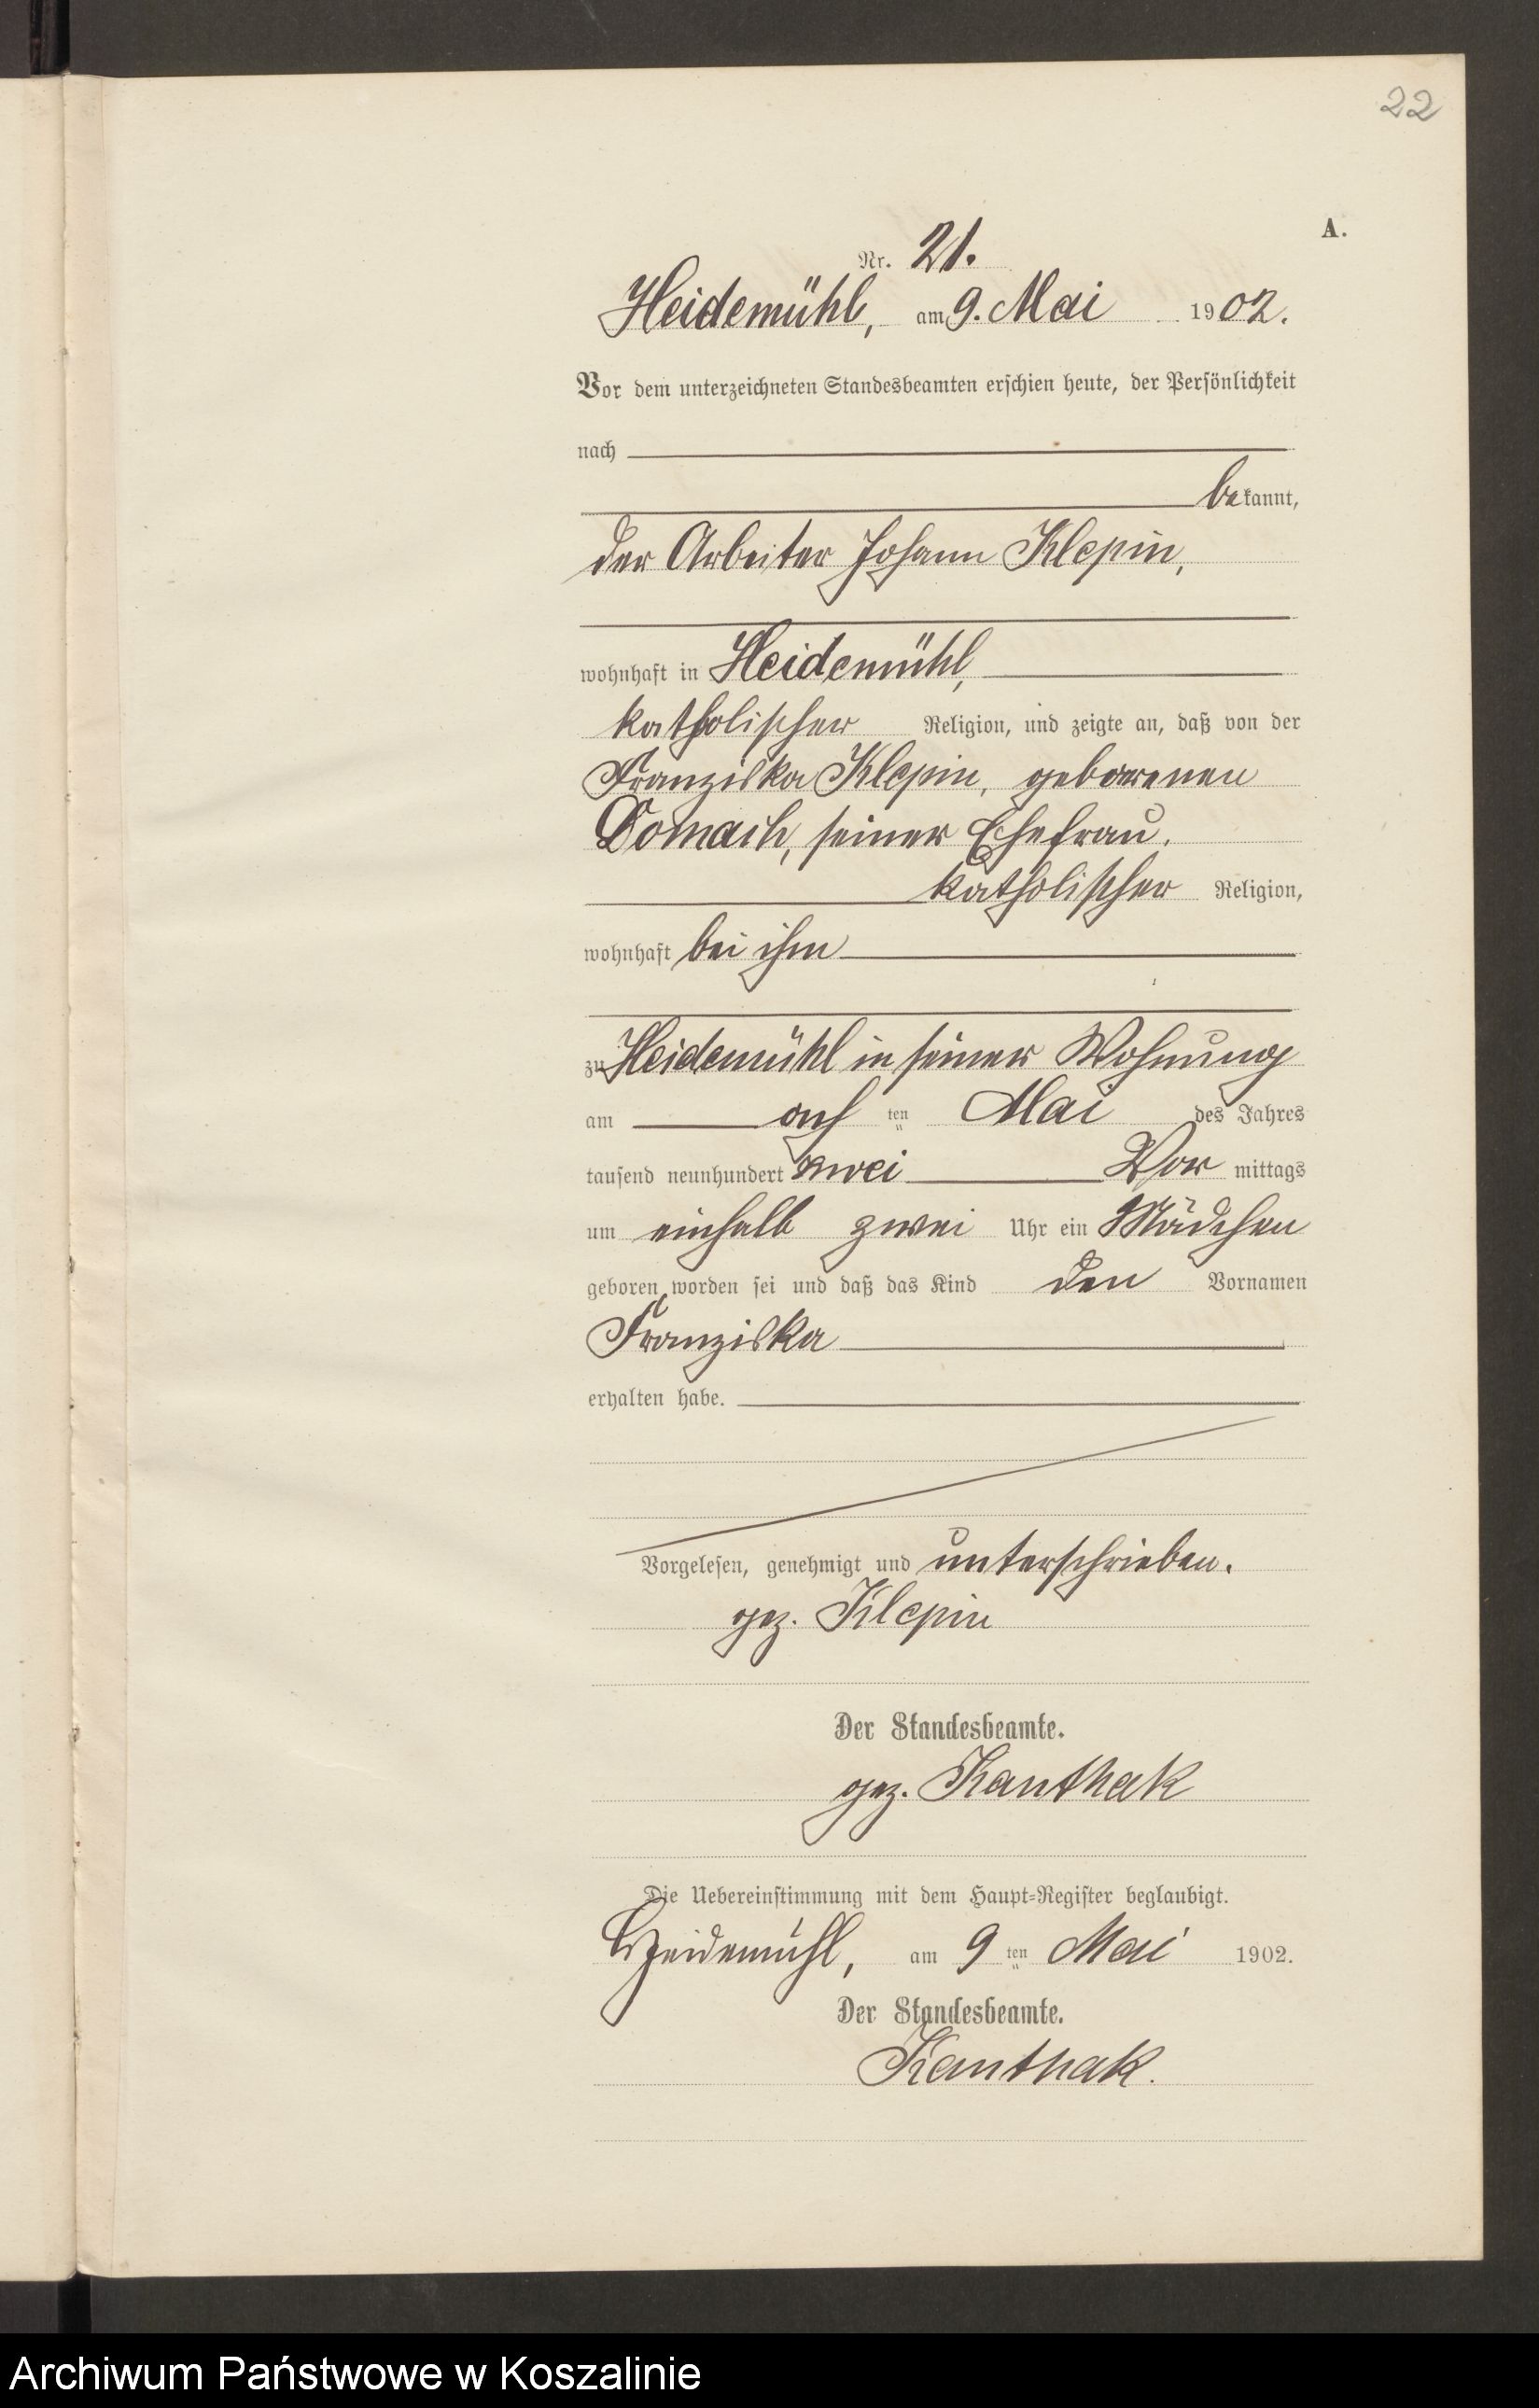 22
A.
Nr. 21.
Heidemühl, am 9. Mai 1902.
Vor dem unterzeichneten Standesbeamten erschien heute, der Persönlichkeit
nach
bekannt,
der Arbeiter Johann Klepin,
wohnhaft in Heidemühl,
katholischer Religion, und zeigte an, daß von der
Franziska Klepin, geborenen
Domach, seiner Ehefrau,
katholischer Religion,
wohnhaft bei ihm
zu Heidemühl in seiner Wohnung
am ach ten Mai des Jahres
tausend neunhundert zwei Vor mittags
um einhalb zwei Uhr ein Mädchen
geboren worden sei und daß das Kind den Vornamen
Franziska
erhalten habe.
Vorgelesen, genehmigt und unterschrieben.
gez. Klepin
Der Standesbeamte.
gez. Kanthak
Die Uebereinstimmung mit dem Haupt-Register beglaubigt.
Heidemühl, am 9 ten Mai 1902.
Der Standesbeamte.
Kanthak.
Archiwum Państwowe w Koszalinie